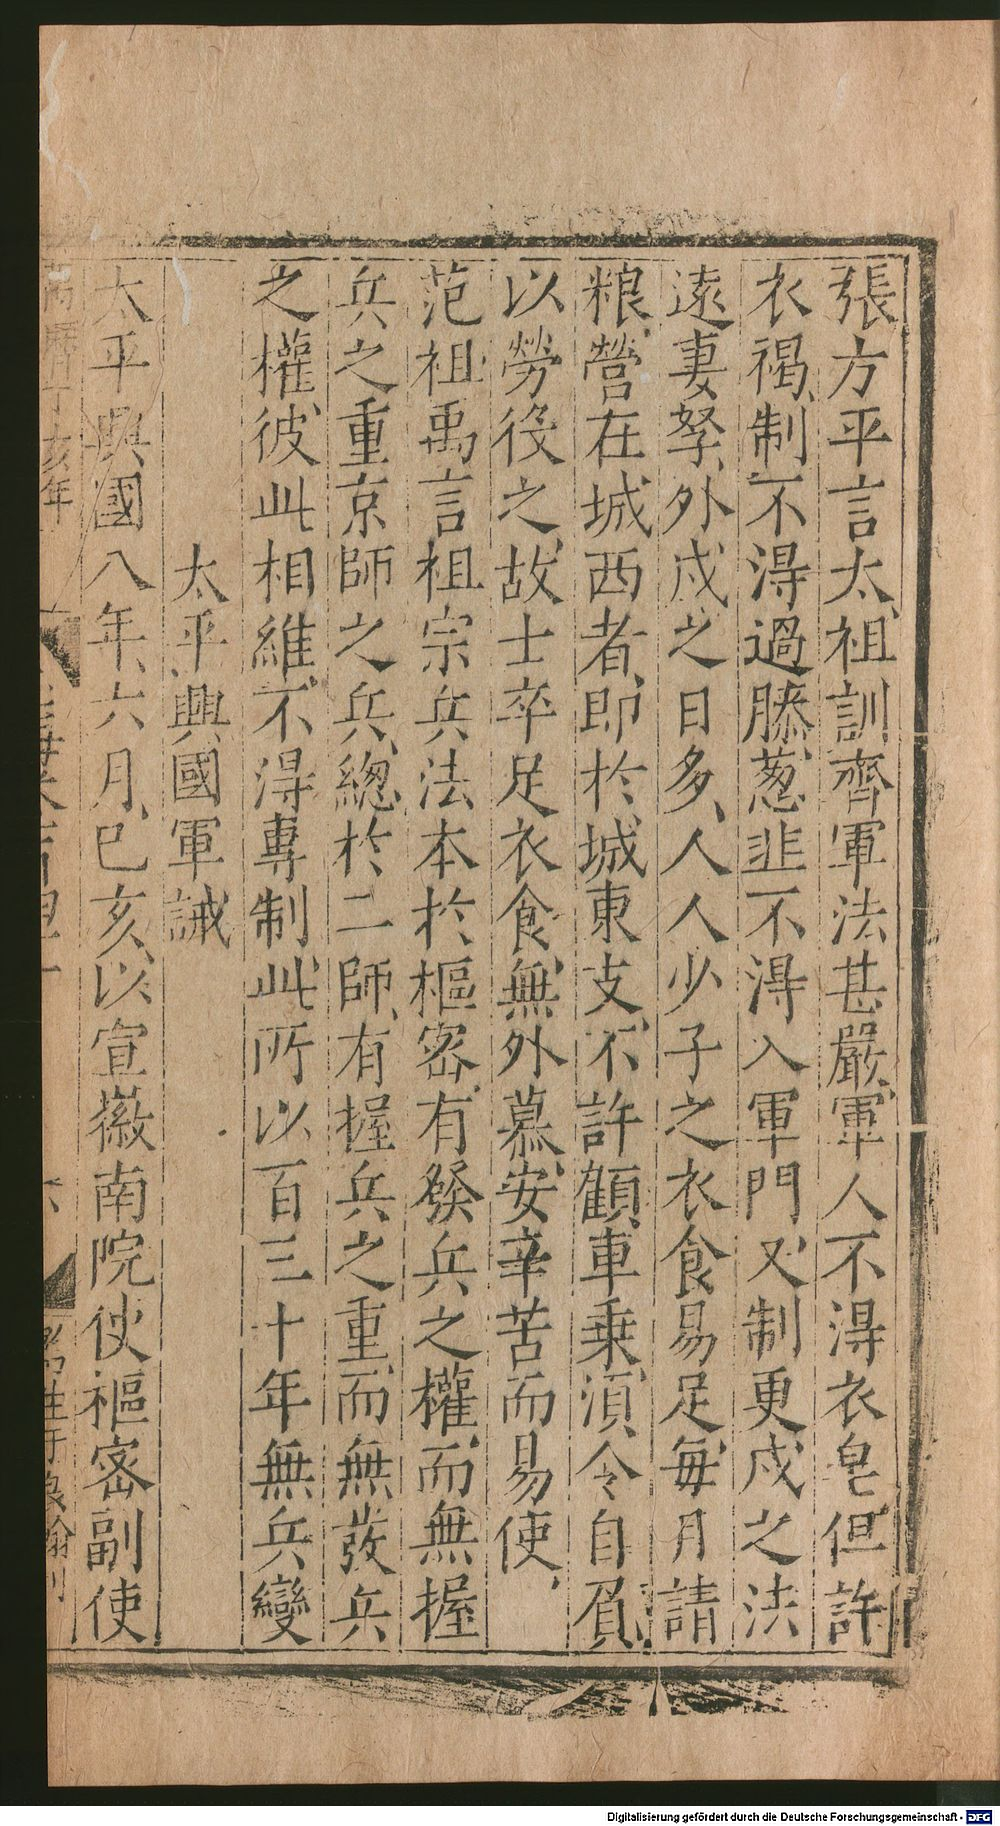 張方平言太祖訓齊軍法甚嚴軍人不得衣皂但許
衣褐制不得過膝葱韭不得入軍門又制更戍之法
遠妻孥外戍之日多人人少子之衣食易足每月請
粮營在城西者即於城東支不許顧車乗湏令自負
以勞役之故士卒足衣食無外慕安辛苦而易使
范祖禹言祖宗兵法本於樞密有發兵之權而無握
兵之重京師之兵總於二師有握兵之重而無發兵
之權彼此相維不得專制此所以百三十年無兵變
太平興國軍誡
太平興國八年六月已亥以宣徽南院使樞密副使
萬曆丁亥年
六
Digitalisierung gefördert durch die Deutsche Forschungsgemeinschaft - DFG